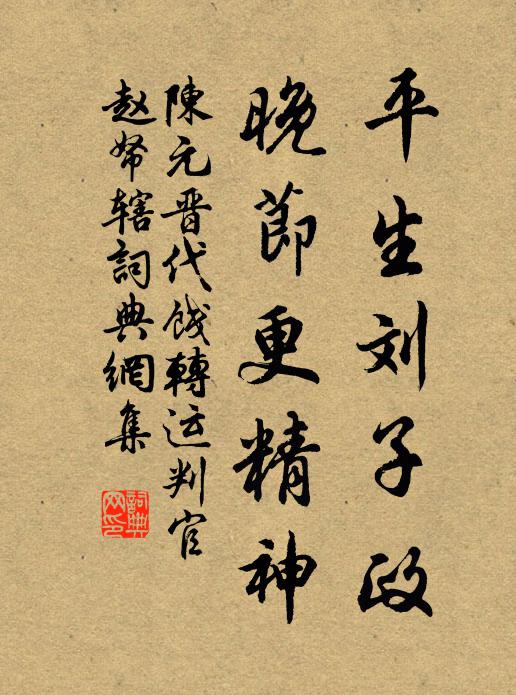 平生刘子政
晚莭更精神
陳元晋代餞轉运判官
赵帑辖詞典網集
詞典网印